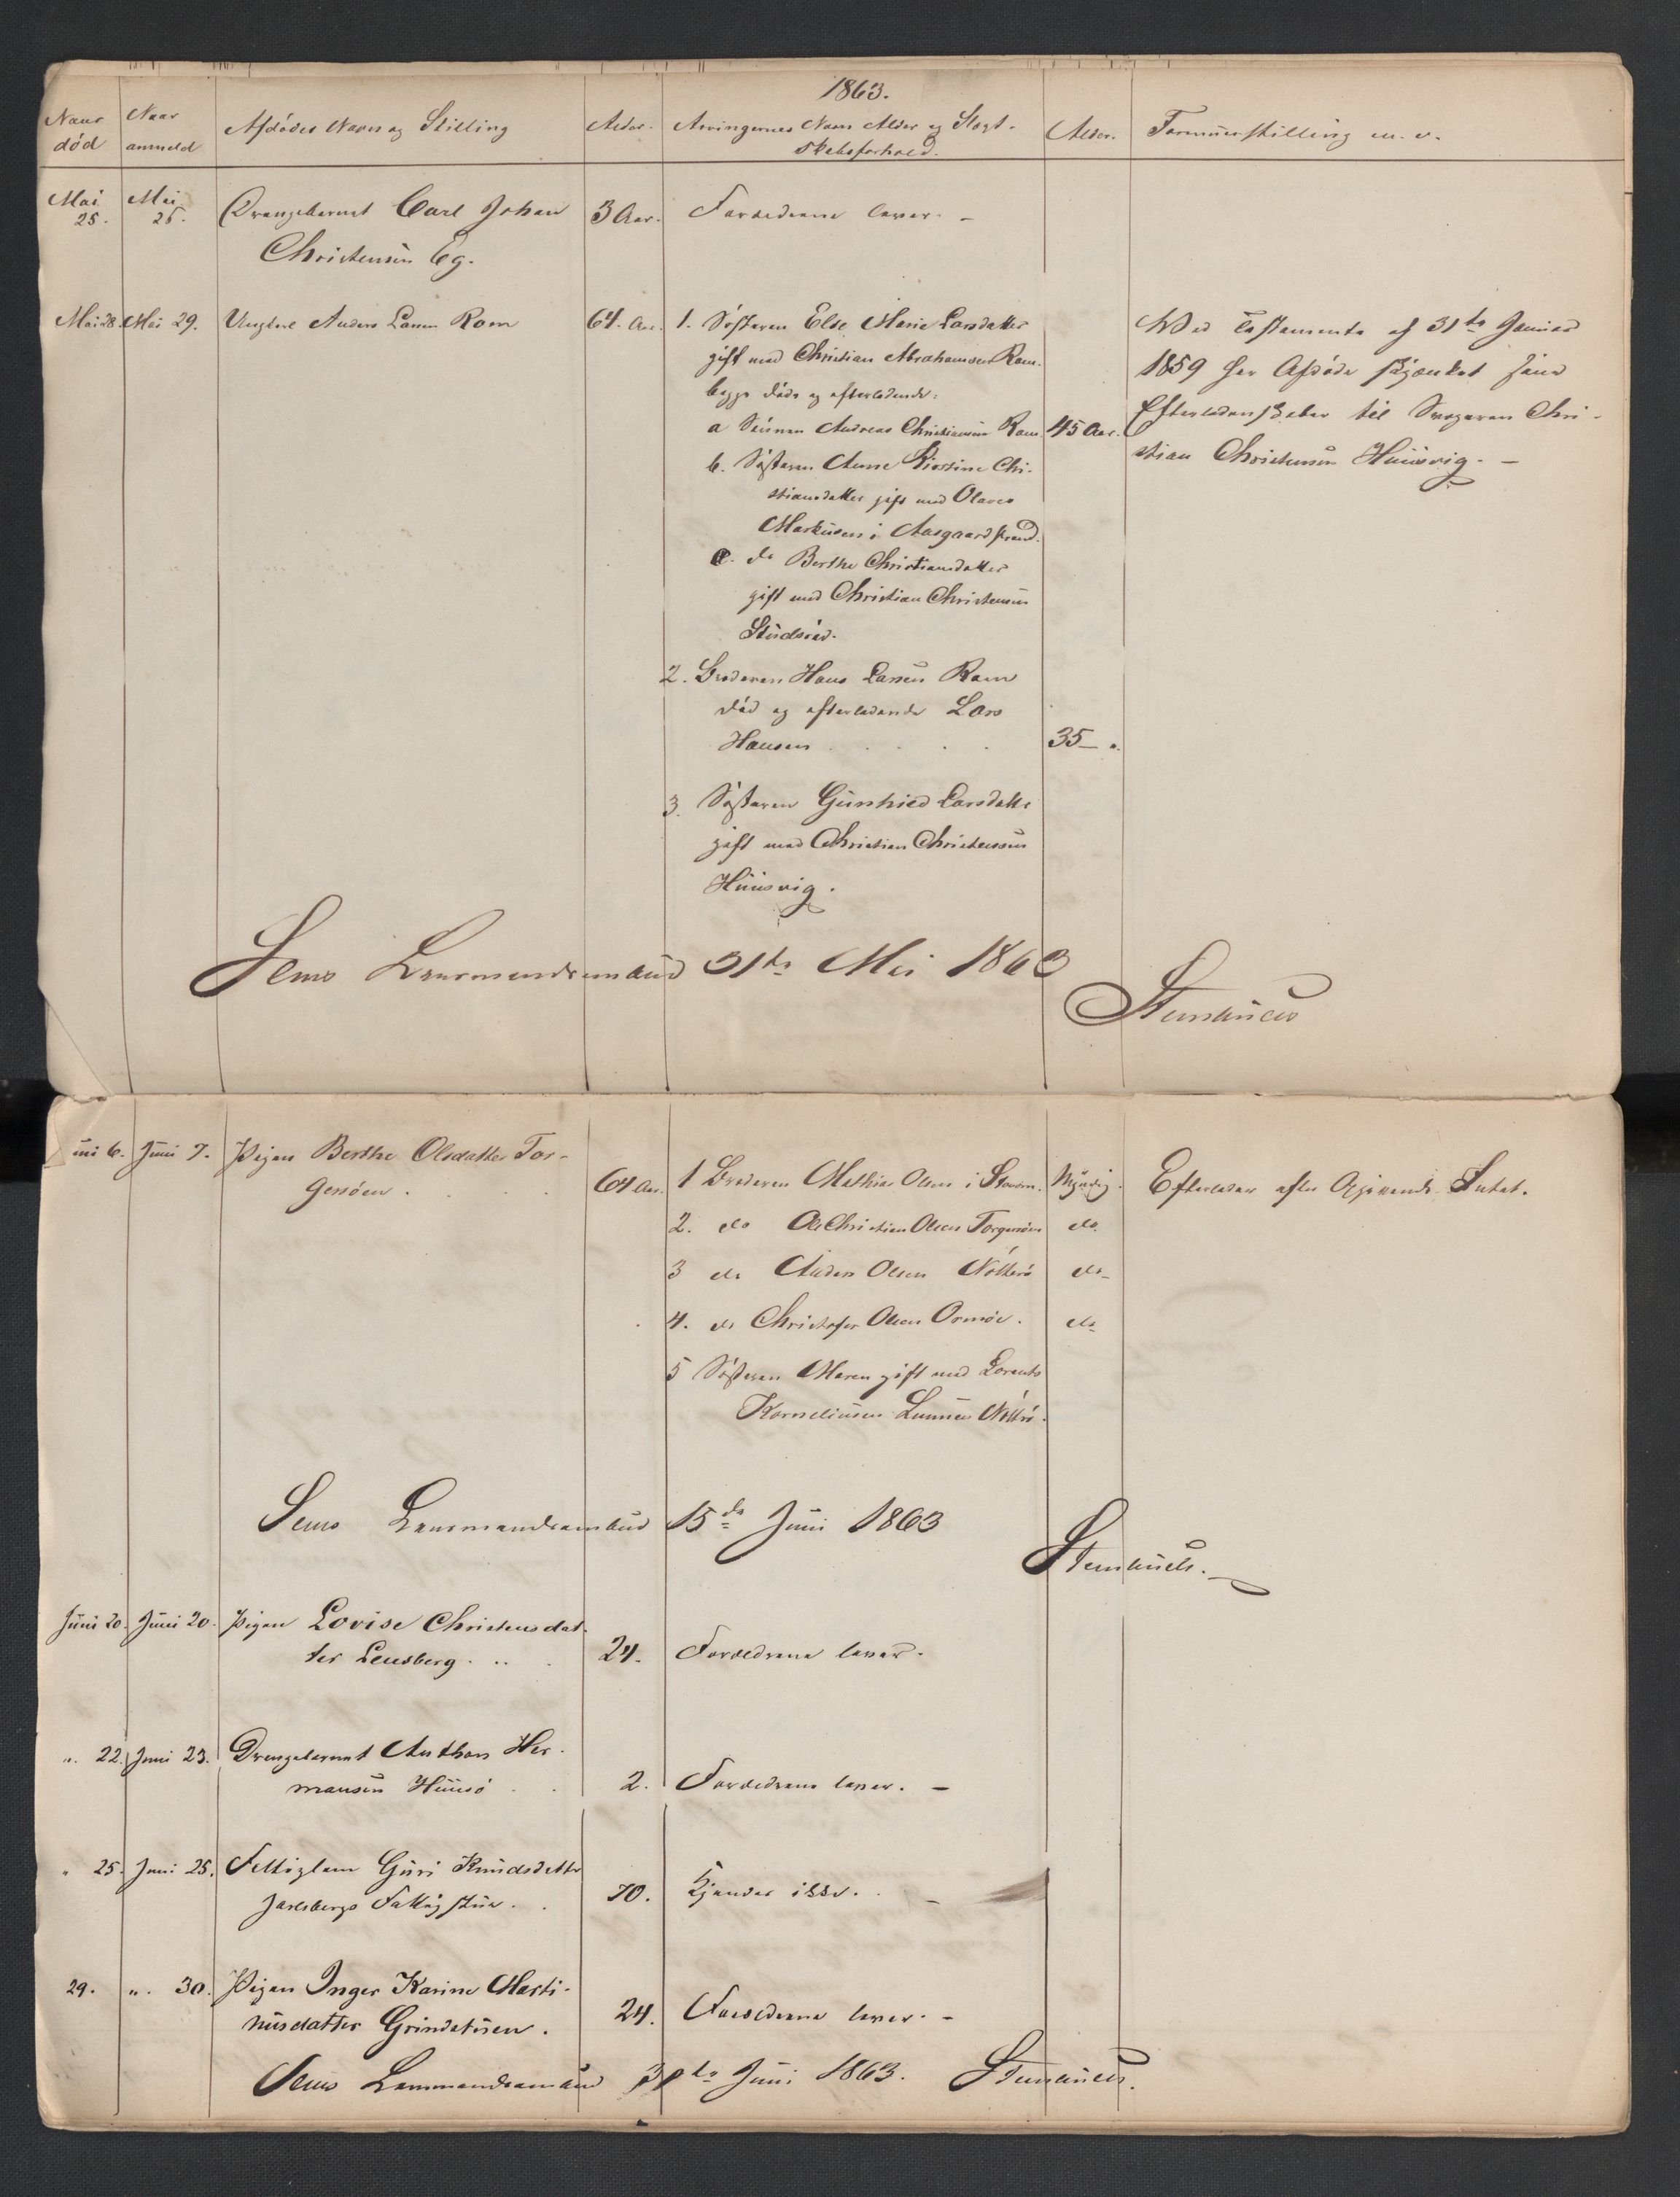 1863.
Naar død
Naar anmeldt
Afdødes Navn og Stilling
Alder.
Arvingernes Navn Alder og Slægt-
skabsforhold.
Alder.
Formuerstilling m. v.
Mai 25.
Mai 25.
Drengebarnet Carl Johan
3 Aar.
Forældrene lever. -
Christensen Eg.
Mai 28.
Mai 29.
Ungkarl Anders Larsen Rom
64. Aar.
1. Søsteren Else Marie Larsdatter
gift med Christian Abrahamsen Ram.
begge døde og efterladende:
a Sønnen Andreas Christiansen Ram
45 Aar.
b. Søsteren Anne Kirstine Chri-
stiansdatter gift med Olaves
Markusen i Aasgaardstrand.
c. do Berthe Christiansdatter
gift med Christian Christensen
Stüdsrød.
2. Broderen Hans Larsen Ram
død og efterladende Lars
Hansen . . . . .
35 — ".
3. Søsteren Gunhild Larsdatter
gift med Christian Christensen
Huusvig.
Ved Testamente af 31te Januar
1859 har Afdøde skjænket sine
Efterladenskaber til Svogeren Chri-
stian Christensen Huusvig. —
Sems Lensmandsembud 31te Mai 1863
uni 6.
Juni 7.
Pigen Berthe Olsdatter Tor-
gersøen . . . .
64 Aar.
1 Broderen Mathias Olsen i Stavern.
Myndig.
Efterlader efter Opgivende Intet.
2. do Ole Christian Olsen Torgersøen
do.
3 do Anders Olsen Nøtterø
do.
4. do Christofer Olsen Ormøe.
do
5 Søsteren Maren gift med Lorents
Korneliusen Nøtterø.
Sems Lensmandsembud 15de Juni 1863
Juni 20.
Juni 20.
Pigen Lovise Christensdat-
ter Lensberg. . .
24.
Forældrene lever.
". 22.
Juni 23.
Drengebarnet Anthon Her-
mansen Huusø . .
2.
Forældrene lever. —
" 25.
Juni 25.
Fattiglem Guri Knudsdatter
Jarlsbergs Fattigstue. .
70.
Kjendes ikke. . —
29.
". 30.
Pigen Inger Karine Marti-
nusdatter Grindstuen.
24.
Forældrene lever. -
Sems Lensmandsembud 30te Juni 1863.